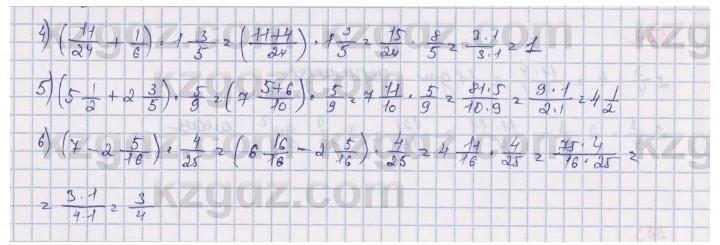 4) (11/24 + 1/6) · 1 3/5 = ((11+4)/24) · 1 3/5 = 15/24 · 8/5 = (3·1)/(3·1) = 1
5) (5 1/2 + 2 3/5) · 5/9 = (7 (5+6)/10) · 5/9 = 7 11/10 · 5/9 = (81·5)/(10·9) = (9·1)/(2·1) = 4 1/2
6) (7 - 2 5/16) · 4/25 = (6 16/16 - 2 5/16) · 4/25 = 4 11/16 · 4/25 = (75·4)/(16·25) =
= (3·1)/(4·1) = 3/4